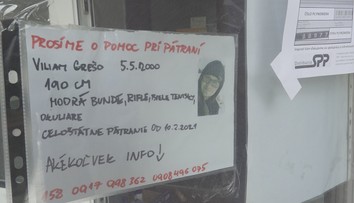 PROSÍME O POMOC PRI PÁTRANÍ
VILIAM GREŠO 5.5.2000
190 CM
MODRÁ BUNDA, RIFLE, BIELE TENISKY,
OKULIARE
CELOŠTÁTNE PÁTRANIE OD 10.2.2021
AKÉKOĽVEK INFO ↓
158 0917 998 862 0908 496 075
SPP